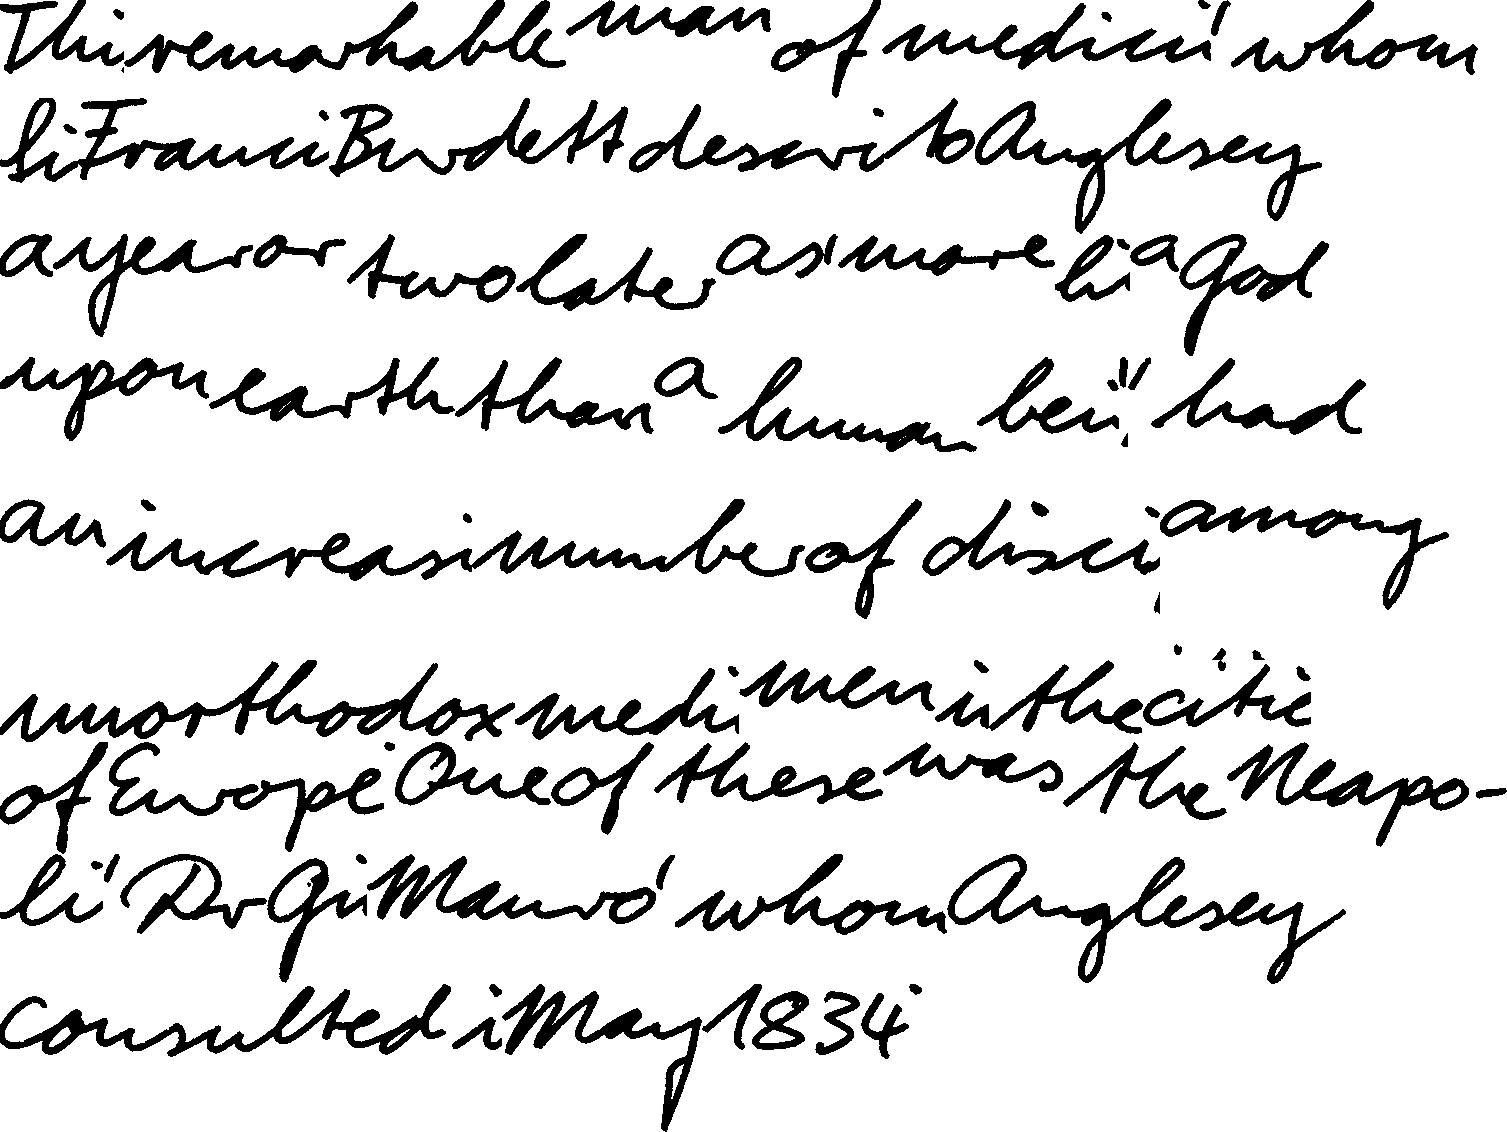 Thi remarkable man of medici' whom
Si Franci Burdett descri to Anglesey
a year or two later as 'more li a God
upon earth than a human bei" had
an increasi number of disci among
unorthodox medi men in the citie
of Europe. One of these was the Neapo-
li' Dr Gi Mauro' whom Anglesey
consulted i May 1834.